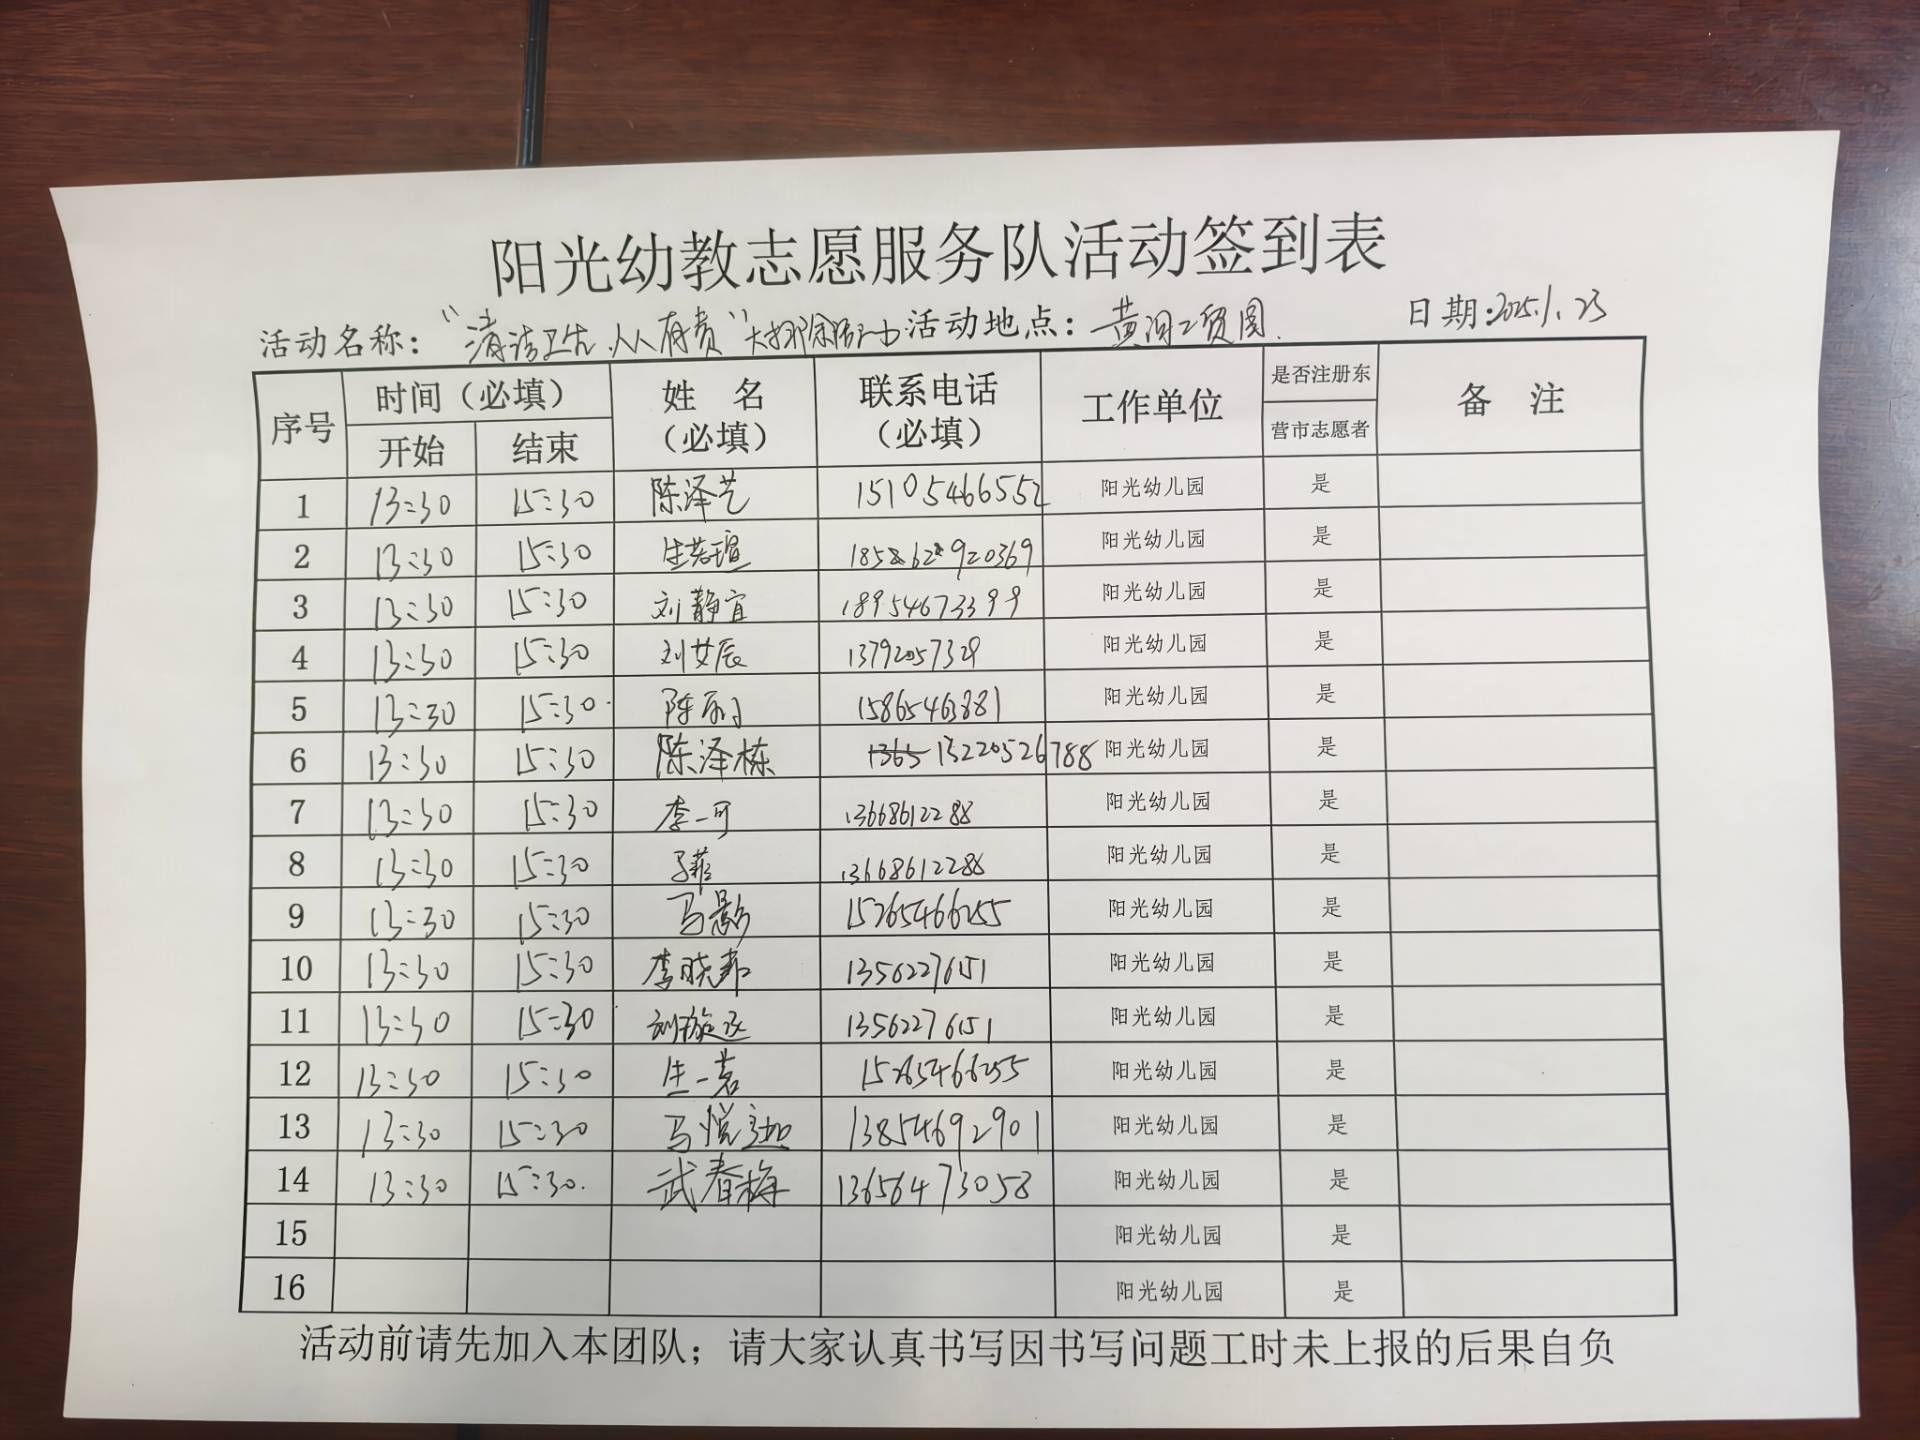 阳光幼教志愿服务队活动签到表
活动名称："清洁卫生,人人有责"大扫除活动 活动地点：黄河工贸园. 日期:2025.1.23
序号 时间（必填） 姓 名（必填） 联系电话（必填） 工作单位 是否注册东营市志愿者 备 注
开始 结束
1 13:30 15:30 陈泽艺 15105466552 阳光幼儿园 是
2 13:30 15:30 生若瑄 阳光幼儿园 是
3 13:30 15:30 刘静宜 18954673399 阳光幼儿园 是
4 13:30 15:30 刘艾辰 13792057329 阳光幼儿园 是
5 13:30 15:30 陈 15865463881 阳光幼儿园 是
6 13:30 15:30 陈泽栋 1365 13220526788 阳光幼儿园 是
7 13:30 15:30 李一可 13668612288 阳光幼儿园 是
8 13:30 15:30 13668612288 阳光幼儿园 是
9 13:30 15:30 马影 15265466255 阳光幼儿园 是
10 13:30 15:30 李晓 13562276151 阳光幼儿园 是
11 13:30 15:30 刘 13562276151 阳光幼儿园 是
12 13:30 15:30 生一茗 15265466255 阳光幼儿园 是
13 13:30 15:30 马悦 13854692901 阳光幼儿园 是
14 13:30 15:30. 武春梅 13656473058 阳光幼儿园 是
15 阳光幼儿园 是
16 阳光幼儿园 是
活动前请先加入本团队；请大家认真书写因书写问题工时未上报的后果自负